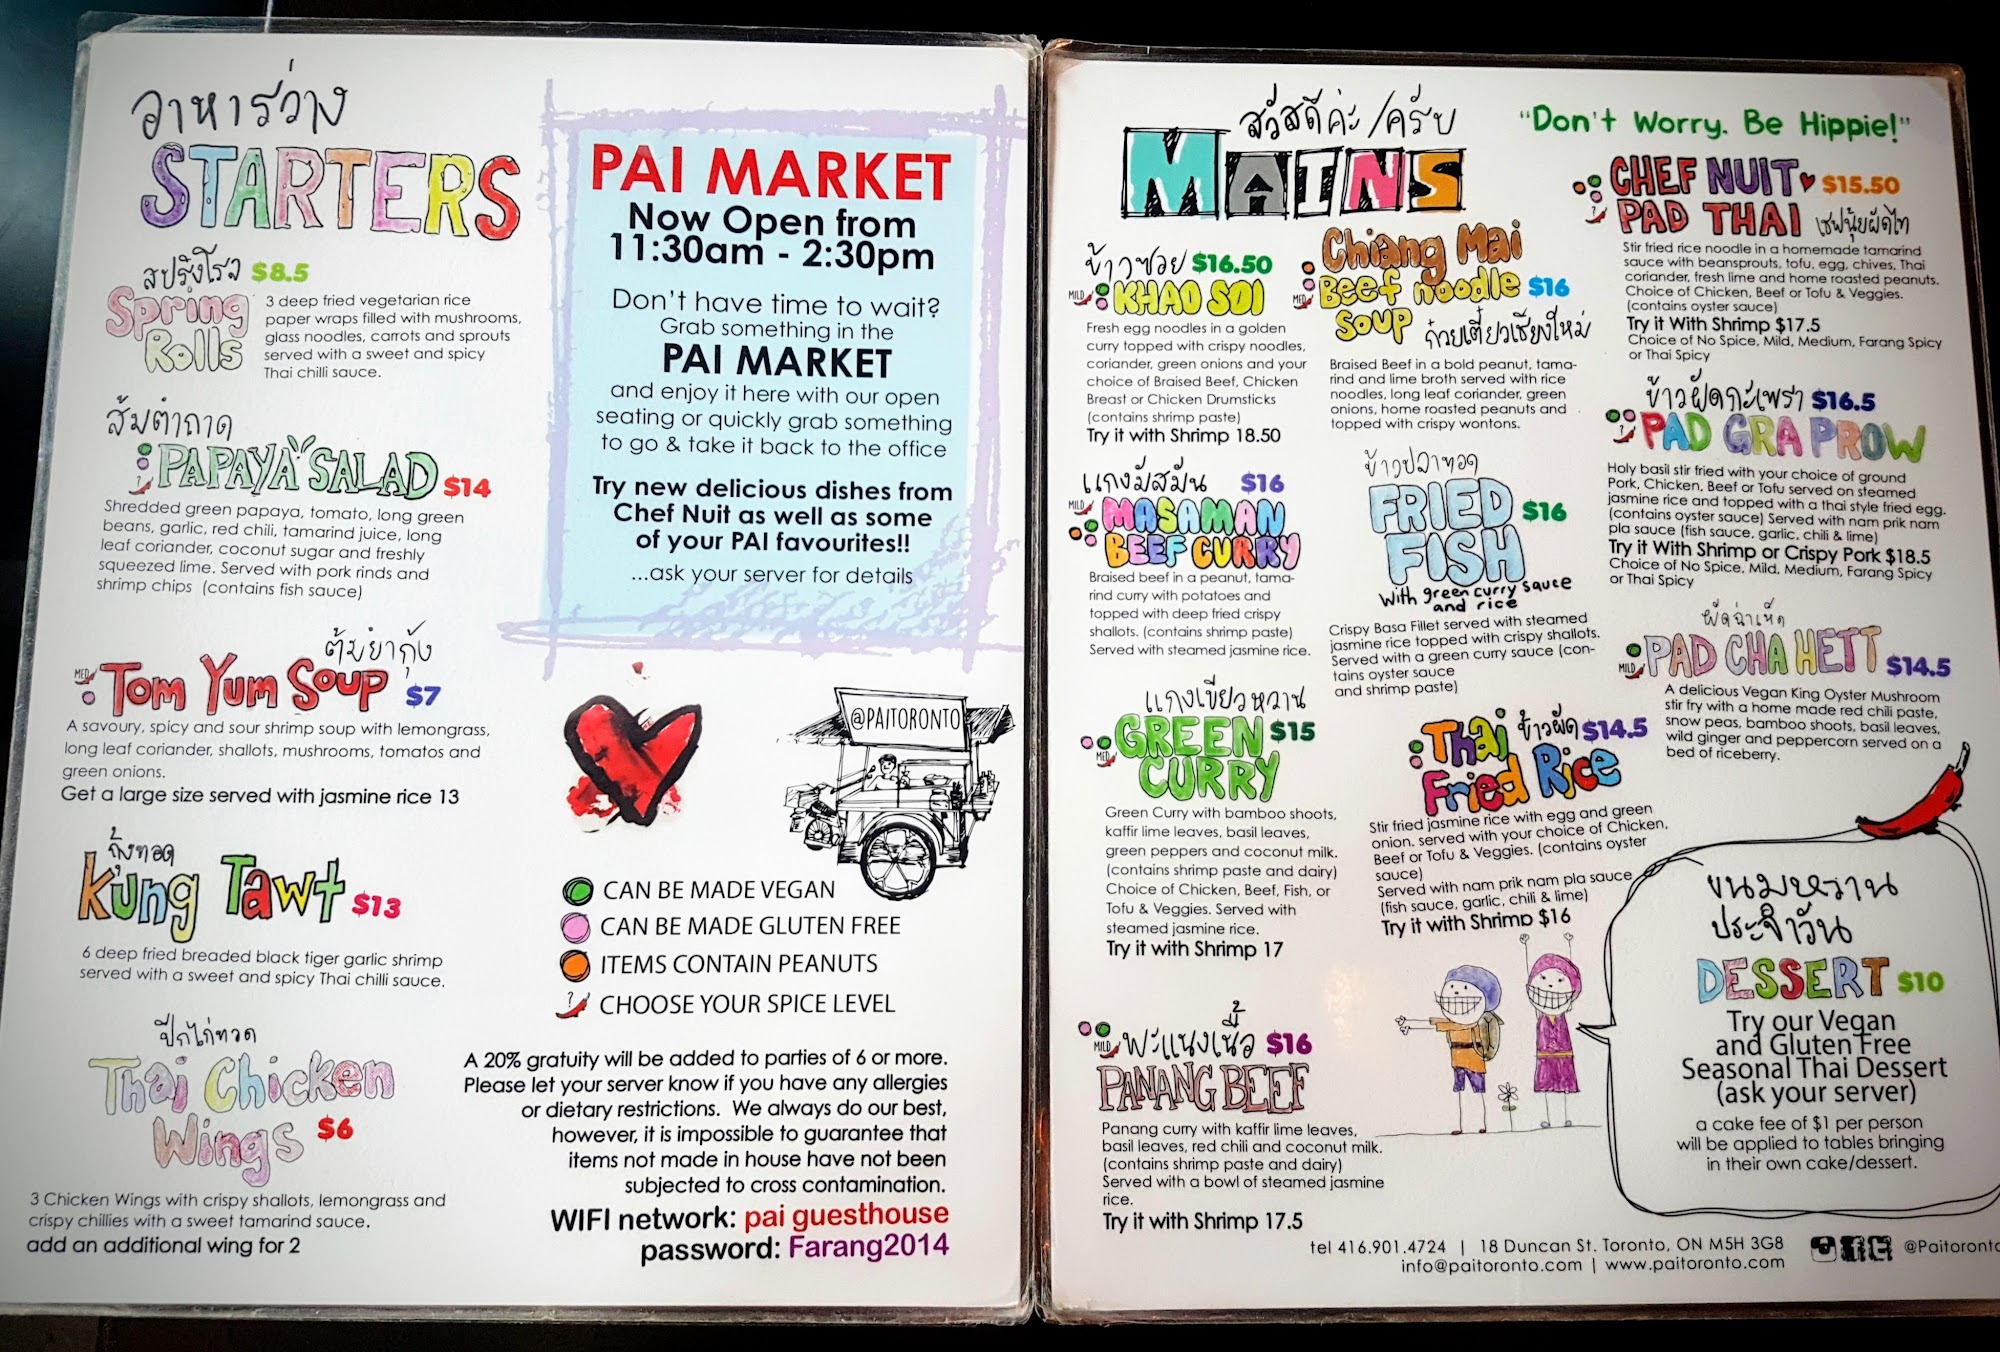 อาหารว่าง
STARTERS
สปริงโรล $8.5
Spring
Rolls
3 deep fried vegetarian rice
paper wraps filled with mushrooms,
glass noodles, carrots and sprouts
served with a sweet and spicy
Thai chilli sauce.
ส้มตำถาด
PAPAYA SALAD $14
Shredded green papaya, tomato, long green
beans, garlic, red chili, tamarind juice, long
leaf coriander, coconut sugar and freshly
squeezed lime. Served with pork rinds and
shrimp chips (contains fish sauce)
ต้มยำกุ้ง
MED
Tom Yum Soup $7
A savoury, spicy and sour shrimp soup with lemongrass,
long leaf coriander, shallots, mushrooms, tomatos and
green onions.
Get a large size served with jasmine rice 13
กุ้งทอด
Kung Tawt $13
6 deep fried breaded black tiger garlic shrimp
served with a sweet and spicy Thai chilli sauce.
ปีกไก่ทอด
Thai Chicken
Wings $6
3 Chicken Wings with crispy shallots, lemongrass and
crispy chillies with a sweet tamarind sauce.
add an additional wing for 2
PAI MARKET
Now Open from
11:30am - 2:30pm
Don't have time to wait?
Grab something in the
PAI MARKET
and enjoy it here with our open
seating or quickly grab something
to go & take it back to the office
Try new delicious dishes from
Chef Nuit as well as some
of your PAI favourites!!
...ask your server for details
@PAITORONTO
CAN BE MADE VEGAN
CAN BE MADE GLUTEN FREE
ITEMS CONTAIN PEANUTS
? CHOOSE YOUR SPICE LEVEL
A 20% gratuity will be added to parties of 6 or more.
Please let your server know if you have any allergies
or dietary restrictions. We always do our best,
however, it is impossible to guarantee that
items not made in house have not been
subjected to cross contamination.
WIFI network: pai guesthouse
password: Farang2014
สวัสดีค่ะ/ครับ
MAINS
"Don't Worry. Be Hippie!"
ข้าวซอย $16.50
MILD
KHAO SOI
Fresh egg noodles in a golden
curry topped with crispy noodles,
coriander, green onions and your
choice of Braised Beef, Chicken
Breast or Chicken Drumsticks
(contains shrimp paste)
Try it with Shrimp 18.50
แกงมัสมั่น $16
MILD
MASAMAN
BEEF CURRY
Braised beef in a peanut, tama-
rind curry with potatoes and
topped with deep fried crispy
shallots. (contains shrimp paste)
Served with steamed jasmine rice.
แกงเขียวหวาน
MED
GREEN $15
CURRY
Green Curry with bamboo shoots,
kaffir lime leaves, basil leaves,
green peppers and coconut milk.
(contains shrimp paste and dairy)
Choice of Chicken, Beef, Fish, or
Tofu & Veggies. Served with
steamed jasmine rice.
Try it with Shrimp 17
MILD
พะแนงเนื้อ $16
PANANG BEEF
Panang curry with kaffir lime leaves,
basil leaves, red chili and coconut milk.
(contains shrimp paste and dairy)
Served with a bowl of steamed jasmine
rice.
Try it with Shrimp 17.5
Chiang Mai
MED
Beef noodle $16
Soup ก๋วยเตี๋ยวเชียงใหม่
Braised Beef in a bold peanut, tama-
rind and lime broth served with rice
noodles, long leaf coriander, green
onions, home roasted peanuts and
topped with crispy wontons.
ข้าวปลาทอด
FRIED $16
FISH
With green curry sauce
and rice
Crispy Basa Fillet served with steamed
jasmine rice topped with crispy shallots.
Served with a green curry sauce (con-
tains oyster sauce
and shrimp paste)
Thai ข้าวผัด $14.5
Fried Rice
Stir fried jasmine rice with egg and green
onion. served with your choice of Chicken,
Beef or Tofu & Veggies. (contains oyster
sauce)
Served with nam prik nam pla sauce
(fish sauce, garlic, chili & lime)
Try it with Shrimp $16
CHEF NUIT $15.50
PAD THAI เชฟนุ้ยผัดไท
Stir fried rice noodle in a homemade tamarind
sauce with beansprouts, tofu, egg, chives, Thai
coriander, fresh lime and home roasted peanuts.
Choice of Chicken, Beef or Tofu & Veggies.
(contains oyster sauce)
Try it With Shrimp $17.5
Choice of No Spice, Mild, Medium, Farang Spicy
or Thai Spicy
ข้าวผัดกะเพรา $16.5
PAD GRA PROW
Holy basil stir fried with your choice of ground
Pork, Chicken, Beef or Tofu served on steamed
jasmine rice and topped with a thai style fried egg.
(contains oyster sauce) Served with nam prik nam
pla sauce (fish sauce, garlic, chili & lime)
Try it With Shrimp or Crispy Pork $18.5
Choice of No Spice, Mild, Medium, Farang Spicy
or Thai Spicy
ผัดฉ่าเห็ด
MILD
PAD CHA HETT $14.5
A delicious Vegan King Oyster Mushroom
stir fry with a home made red chili paste,
snow peas, bamboo shoots, basil leaves,
wild ginger and peppercorn served on a
bed of riceberry.
ขนมหวาน
ประจำวัน
DESSERT $10
Try our Vegan
and Gluten Free
Seasonal Thai Dessert
(ask your server)
a cake fee of $1 per person
will be applied to tables bringing
in their own cake/dessert.
tel 416.901.4724 | 18 Duncan St. Toronto, ON M5H 3G8
@Paitoronto
info@paitoronto.com | www.paitoronto.com